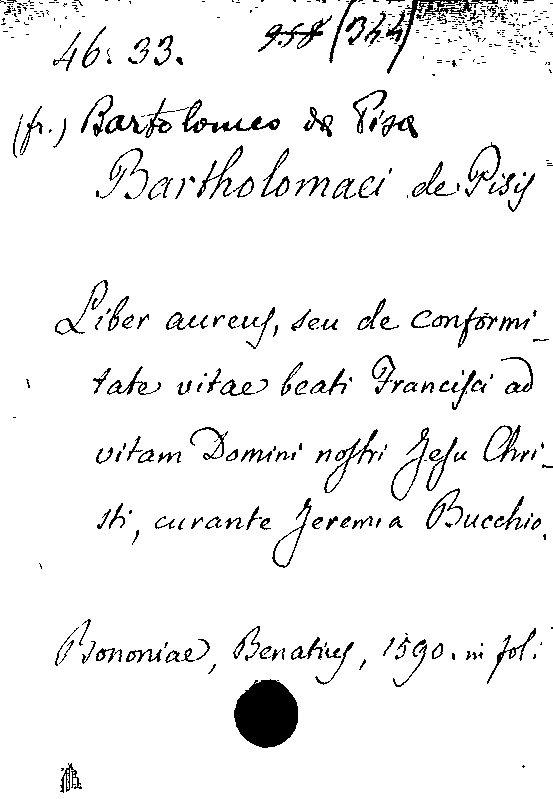 46. 33. 958 (344)
(fr.) Bartolomeo da Pisa
Bartholomaei de Pisis
Liber aureus, seu de conformi-
tate vitae beati Francisci ad
vitam Domini nostri Jesu Chri-
sti, curante Jeremia Bucchio.
Bononiae, Benatius, 1590. in fol.